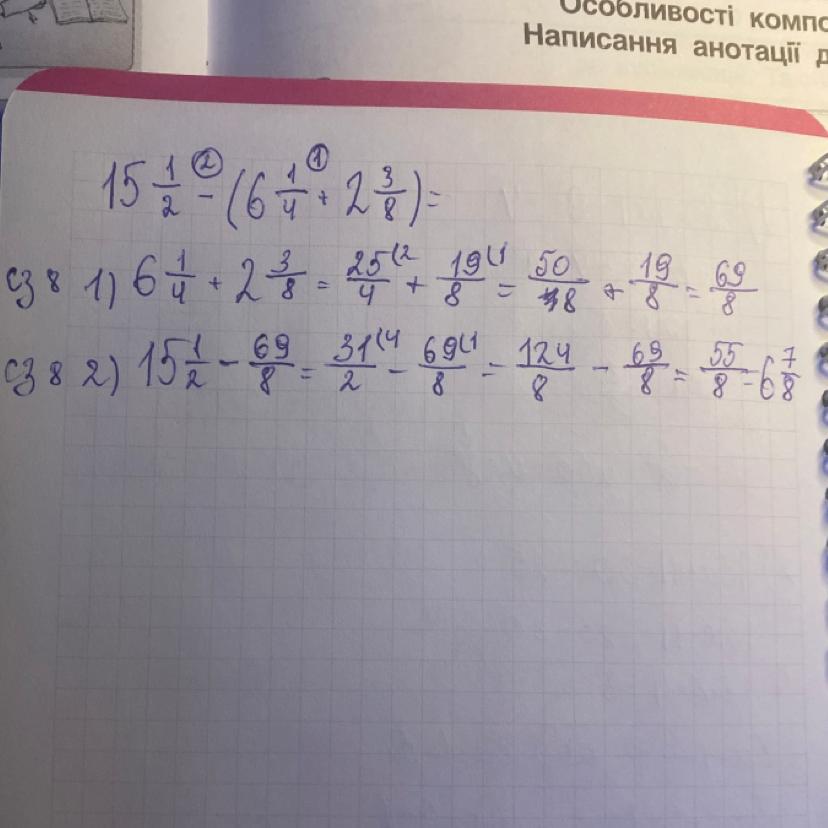 Особливості компо
Написання анотації д
15 1/2 -② (6 1/4 +① 2 3/8) =
СЗ 8 1) 6 1/4 + 2 3/8 = 25/4 (2 + 19/8 (1 = 50/8 + 19/8 = 69/8
СЗ 8 2) 15 1/2 - 69/8 = 31/2 (4 - 69/8 (1 = 124/8 - 69/8 = 55/8 = 6 7/8